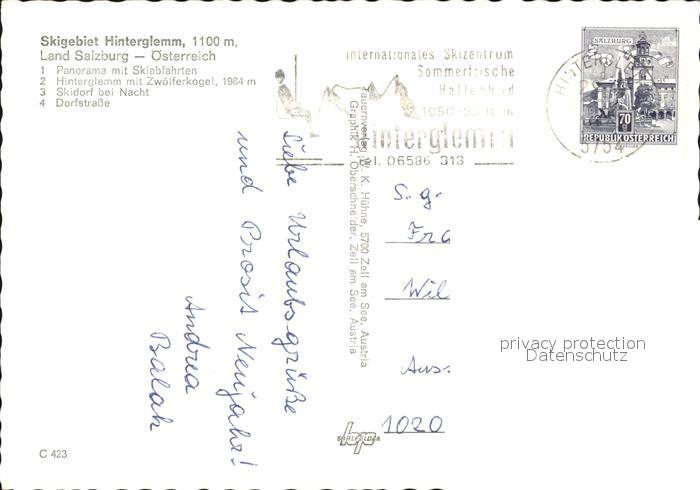 Skigebiet Hinterglemm, 1100 m,
Land Salzburg — Österreich
1 Panorama mit Skiabfahrten
2 Hinterglemm mit Zwölferkogel, 1984 m
3 Skidorf bei Nacht
4 Dorfstraße
internationales Skizentrum
Sommerfrische
Hallenbad
1050-2200 m
interglemm
Tel. 06586 313
SALZBURG
70
REPUBLIK ÖSTERREICH
HINTERGL
5754
Liebe Urlaubsgrüße
und Prosit Neujahr!
Andrea
Balah
Tauernverlag W. K. Hühne, 5700 Zell am See, Austria
Graphik H. Oberschneider, Zell am See, Austria
S.g.
Fra
Wil
Aus.
1020
privacy protection
Datenschutz
C 423